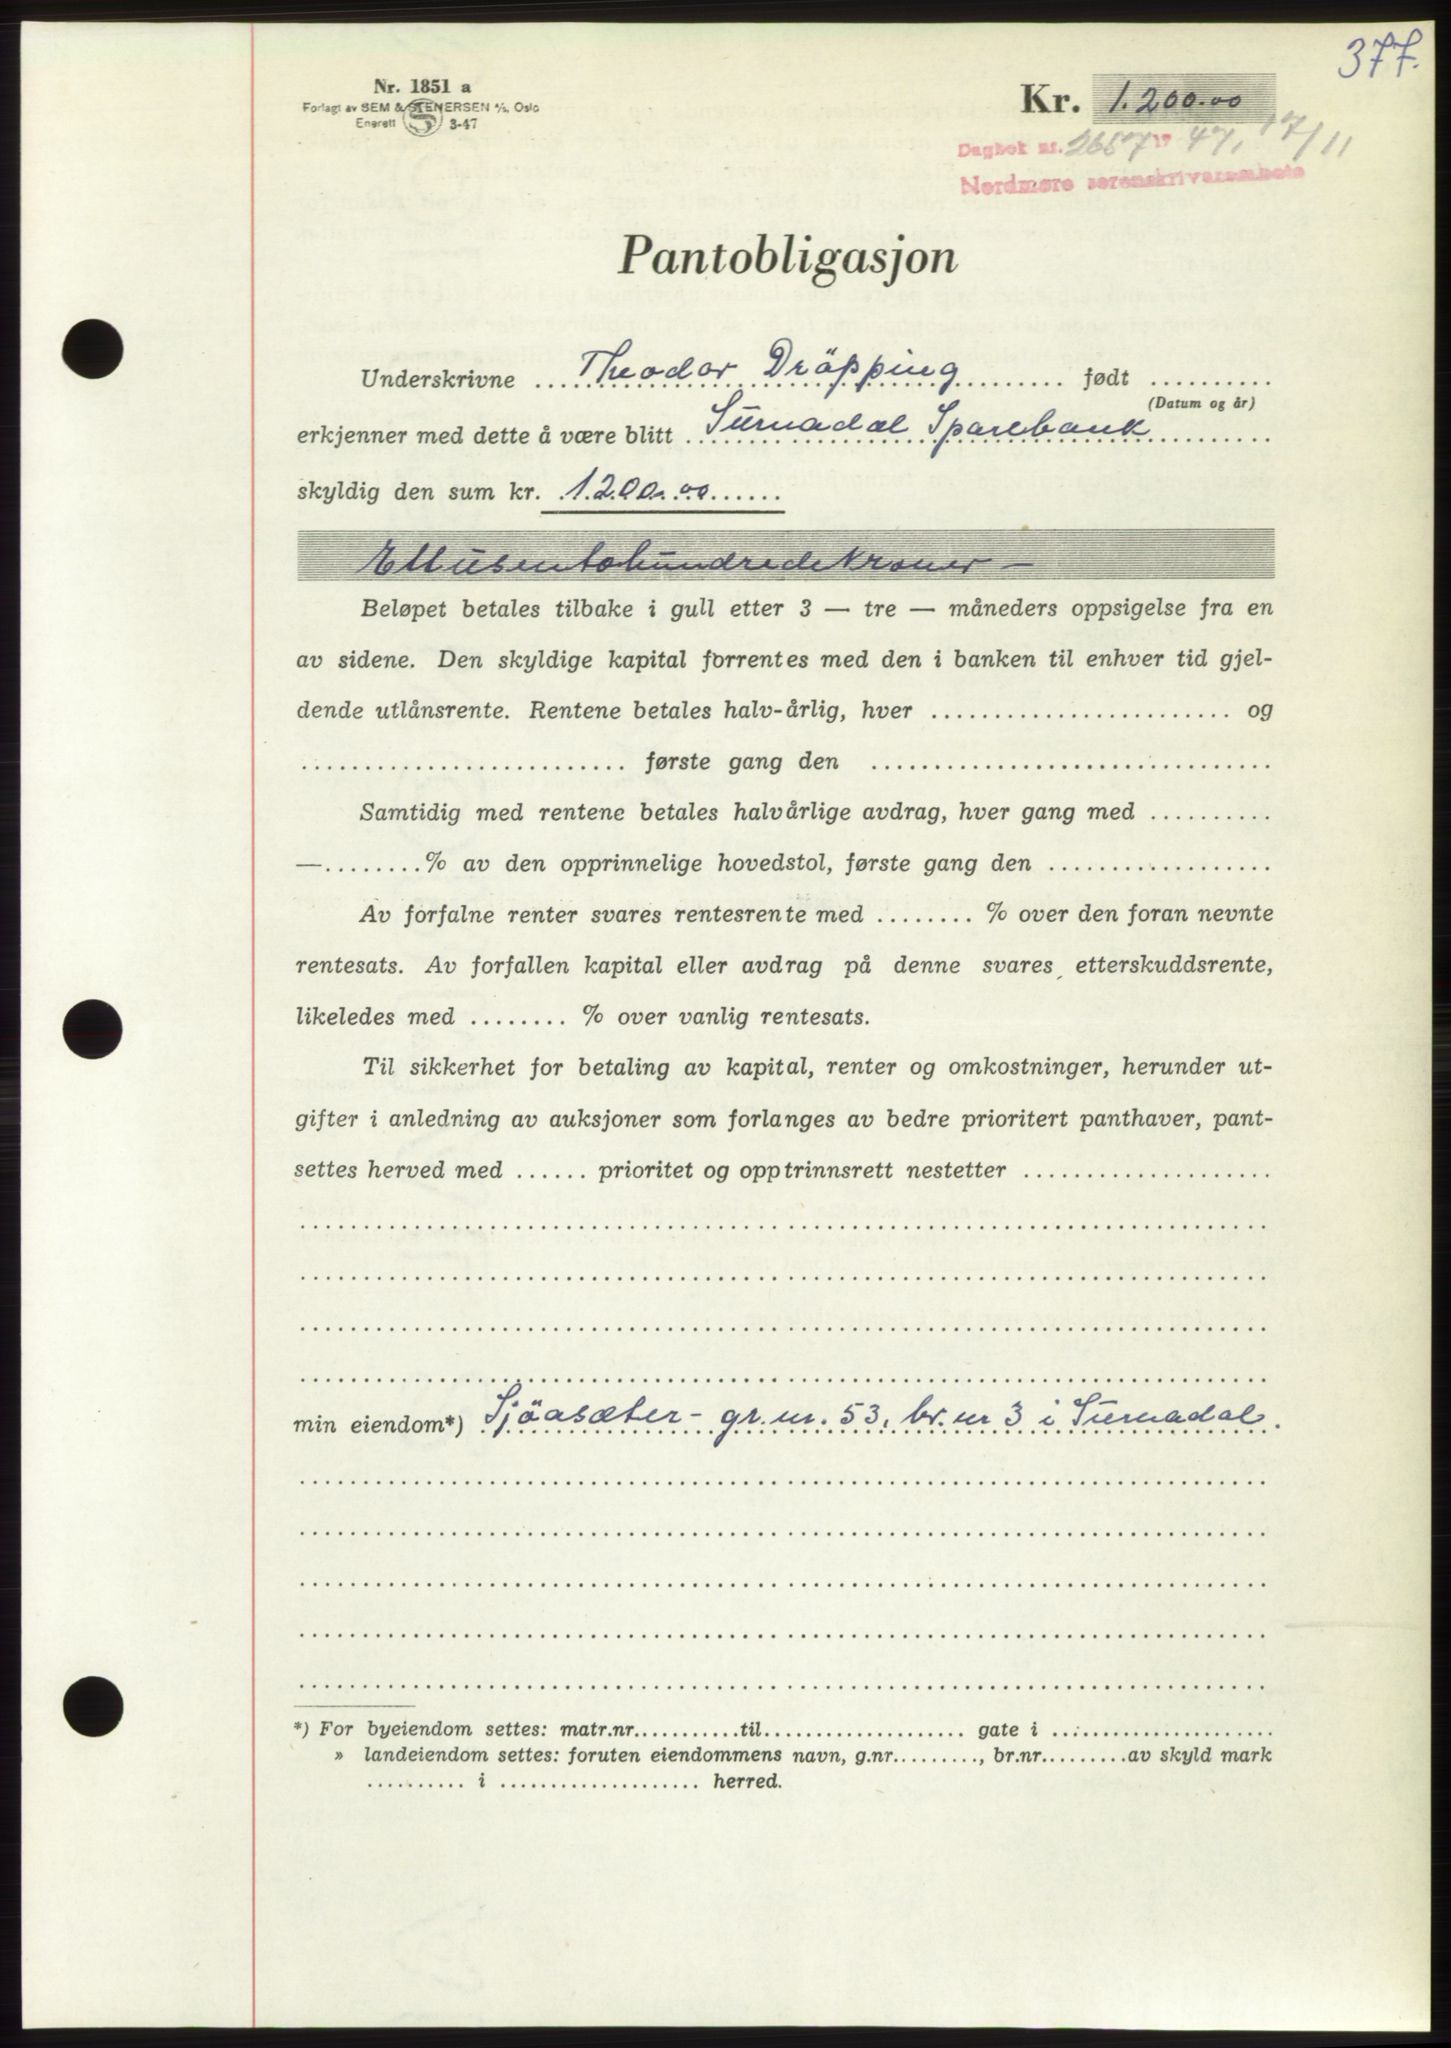 377.
Nr. 1851 a
Forlagt av SEM & STENERSEN A/S, Oslo
Enerett S 3-47
Kr. 1.200.00
Dagbok nr. 2657 19 47, 17/11
Nordmøre sorenskrivarembete
Pantobligasjon
Underskrivne Theodor Dräpping født ..........
(Datum og år)
erkjenner med dette å være blitt Surnadal Sparebank
skyldig den sum kr. 1.200.00
Ettusentohundredekroner —
Beløpet betales tilbake i gull etter 3 — tre — måneders oppsigelse fra en
av sidene. Den skyldige kapital forrentes med den i banken til enhver tid gjel-
dende utlånsrente. Rentene betales halv-årlig, hver ........................ og
.......................... første gang den ................................
Samtidig med rentene betales halvårlige avdrag, hver gang med ..........
—........% av den opprinnelige hovedstol, første gang den ..................
Av forfalne renter svares rentesrente med ........ % over den foran nevnte
rentesats. Av forfallen kapital eller avdrag på denne svares etterskuddsrente,
likeledes med ........ % over vanlig rentesats.
Til sikkerhet for betaling av kapital, renter og omkostninger, herunder ut-
gifter i anledning av auksjoner som forlanges av bedre prioritert panthaver, pant-
settes herved med ...... prioritet og opptrinnsrett nestetter ....................
min eiendom*) Sjöasæter - gr. nr. 53, br. nr 3 i Surnadal.
*) For byeiendom settes: matr.nr...........til.................... gate i ......................
» landeiendom settes: foruten eiendommens navn, g.nr........., br.nr.........av skyld mark
.......... i .................... herred.